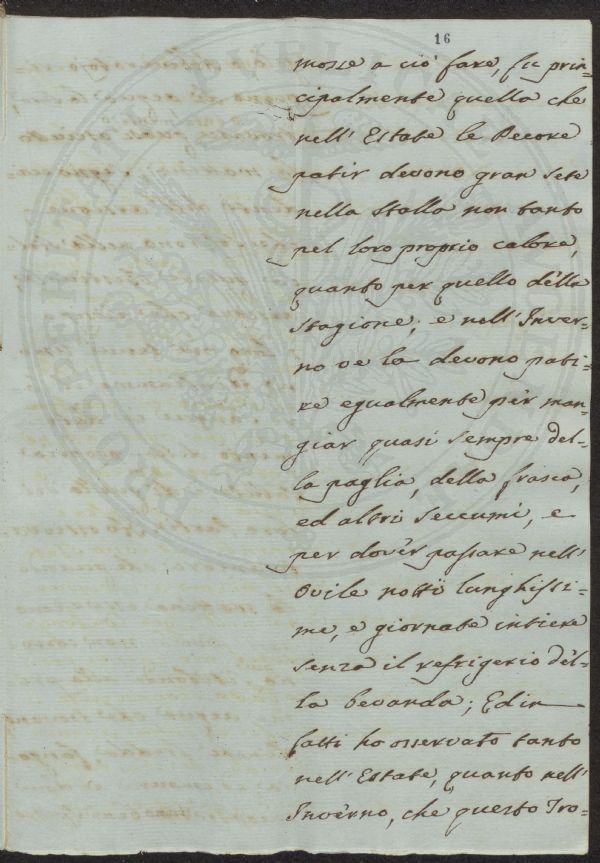 16
mosse a ciò fare, fu prin-
cipalmente quella che
nell' Estate le Pecore
patir devono gran sete
nella stalla non tanto
pel loro proprio calore,
quanto per quello della
stagione; e nell' Inver-
no ve la devono pati-
re egualmente per man-
giar quasi sempre del-
la paglia, della frasca,
ed altri seccumi, e
per dover passare nell'
Ovile notti lunghissi-
me, e giornate intiere
senza il refrigerio del-
la bevanda; Ed in
fatti ho osservato tanto
nell' Estate, quanto nell'
Inverno, che questo Tro-